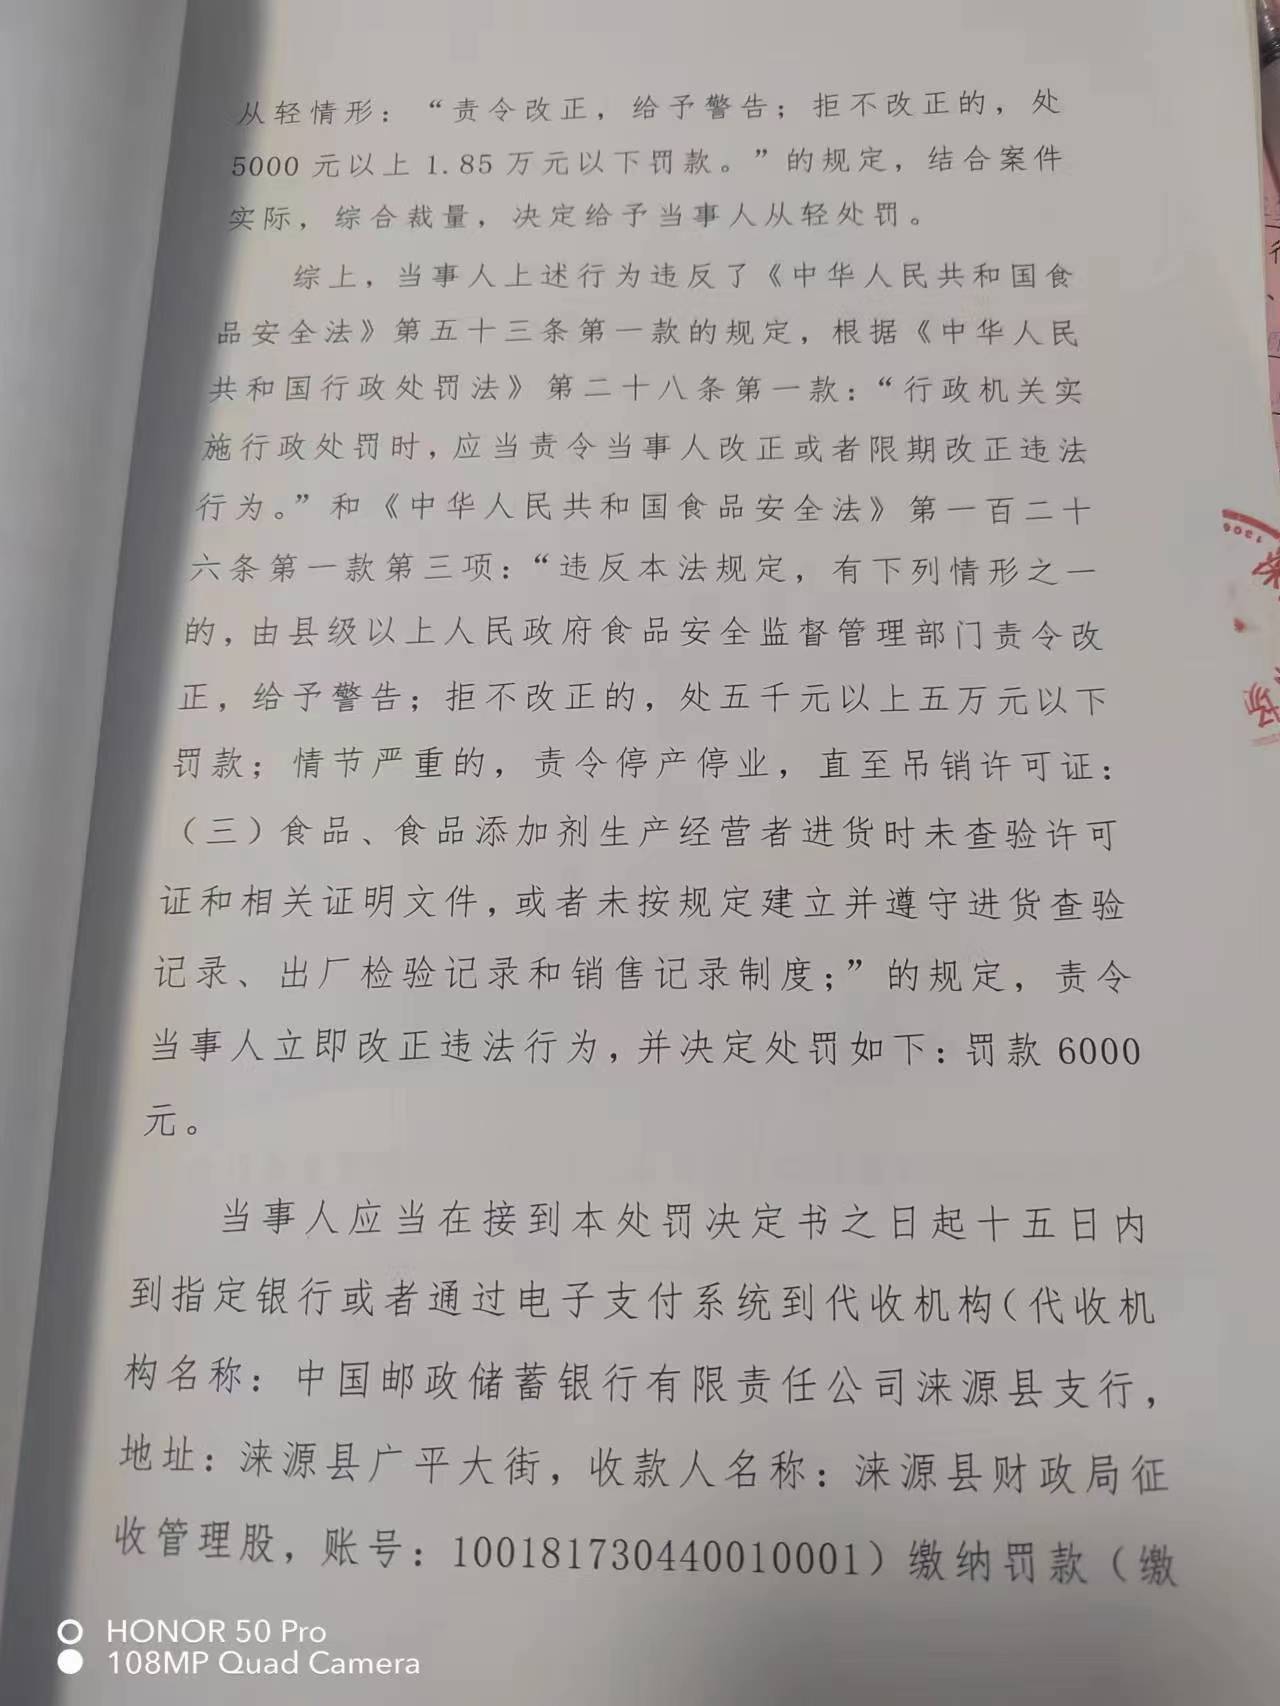 从轻情形：“责令改正，给予警告；拒不改正的，处
5000元以上1.85万元以下罚款。”的规定，结合案件
实际，综合裁量，决定给予当事人从轻处罚。
综上，当事人上述行为违反了《中华人民共和国食
品安全法》第五十三条第一款的规定，根据《中华人民
共和国行政处罚法》第二十八条第一款：“行政机关实
施行政处罚时，应当责令当事人改正或者限期改正违法
行为。”和《中华人民共和国食品安全法》第一百二十
六条第一款第三项：“违反本法规定，有下列情形之一
的，由县级以上人民政府食品安全监督管理部门责令改
正，给予警告；拒不改正的，处五千元以上五万元以下
罚款；情节严重的，责令停产停业，直至吊销许可证：
（三）食品、食品添加剂生产经营者进货时未查验许可
证和相关证明文件，或者未按规定建立并遵守进货查验
记录、出厂检验记录和销售记录制度；”的规定，责令
当事人立即改正违法行为，并决定处罚如下：罚款6000
元。
当事人应当在接到本处罚决定书之日起十五日内
到指定银行或者通过电子支付系统到代收机构（代收机
构名称：中国邮政储蓄银行有限责任公司涞源县支行，
地址：涞源县广平大街，收款人名称：涞源县财政局征
收管理股，账号：100181730440010001）缴纳罚款（缴
HONOR 50 Pro
108MP Quad Camera